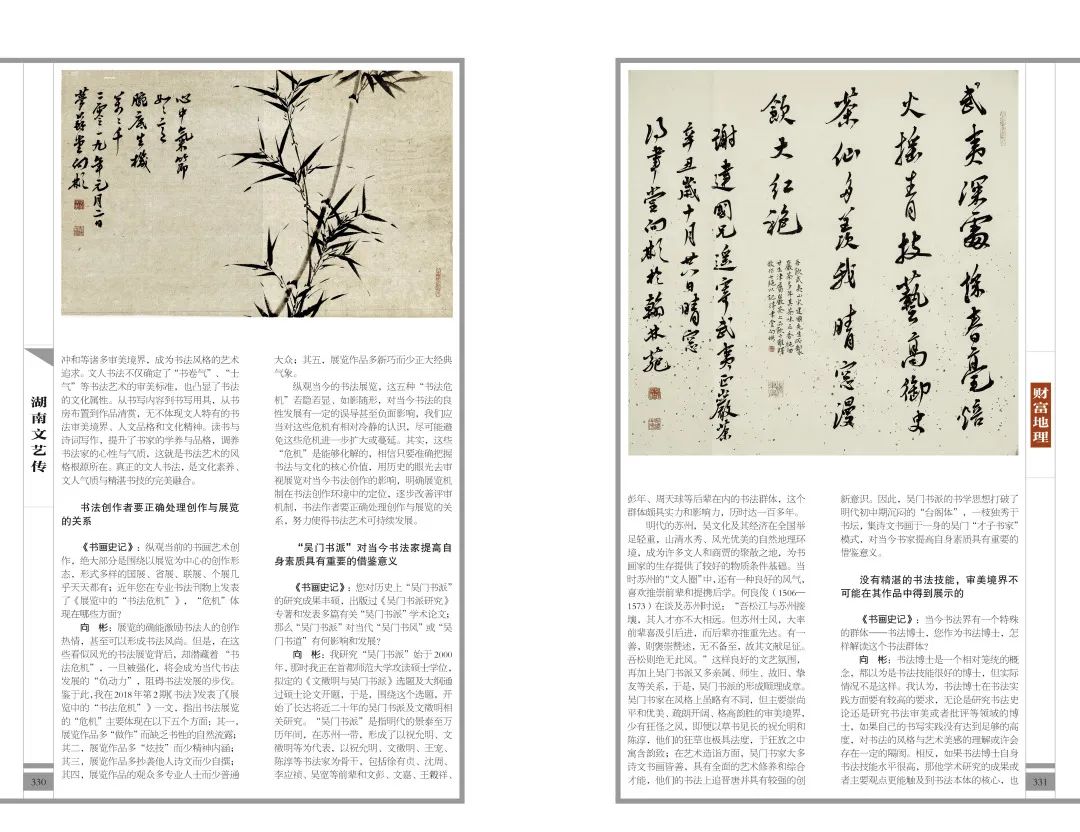 心中气节
如如言
腕底生機
万万千
二零一九年元月二日
梦苏堂向彬
湖南文艺传
冲和等诸多审美境界，成为书法风格的艺术
追求。文人书法不仅确定了“书卷气”、“士
气”等书法艺术的审美标准，也凸显了书法
的文化属性。从书写内容到书写用具，从书
房布置到作品清赏，无不体现文人特有的书
法审美境界、人文品格和文化精神。读书与
诗词写作，提升了书家的学养与品格，调养
书法家的心性与气质，这就是书法艺术的风
格根源所在。真正的文人书法，是文化素养、
文人气质与精湛书技的完美融合。
书法创作者要正确处理创作与展览
的关系
《书画史记》：纵观当前的书画艺术创
作，绝大部分是围绕以展览为中心的创作形
态，形式多样的国展、省展、联展、个展几
乎天天都有；近年您在专业书法刊物上发表
了《展览中的“书法危机”》，“危机”体
现在哪些方面？
向　彬：展览的确能激励书法人的创作
热情，甚至可以形成书法风尚。但是，在这
些看似风光的书法展览背后，却潜藏着“书
法危机”，一旦被强化，将会成为当代书法
发展的“负动力”，阻碍书法发展的步伐。
鉴于此，我在2018年第2期《书法》发表了《展
览中的“书法危机”》一文，指出书法展览
的“危机”主要体现在以下五个方面；其一，
展览作品多“做作”而缺乏书性的自然流露；
其二，展览作品多“炫技”而少精神内涵；
其三，展览作品多抄袭他人诗文而少自撰；
其四，展览作品的观众多专业人士而少普通
大众；其五，展览作品多新巧而少正大经典
气象。
纵观当今的书法展览，这五种“书法危
机”若隐若显，如影随形，对当今书法的良
性发展有一定的误导甚至负面影响，我们应
当对这些危机有相对冷静的认识，尽可能避
免这些危机进一步扩大或蔓延。其实，这些
“危机”是能够化解的，相信只要准确把握
书法与文化的核心价值，用历史的眼光去审
视展览对当今书法创作的影响，明确展览机
制在书法创作环境中的定位，逐步改善评审
机制，书法作者要正确处理创作与展览的关
系，努力使得书法艺术可持续发展。
“吴门书派”对当今书法家提高自
身素质具有重要的借鉴意义
《书画史记》：您对历史上“吴门书派”
的研究成果丰硕，出版过《吴门书派研究》
专著和发表多篇有关“吴门书派”学术论文；
那么“吴门书派”对当代“吴门书风”或“吴
门书道”有何影响和发展？
向　彬：我研究“吴门书派”始于2000
年，那时我正在首都师范大学攻读硕士学位，
拟定的《文徵明与吴门书派》选题及大纲通
过硕士论文开题，于是，围绕这个选题，开
始了长达将近二十年的吴门书派及文徵明相
关研究。“吴门书派”是指明代的景泰至万
历年间，在苏州一带，形成了以祝允明、文
徵明等为代表，以祝允明、文徵明、王宠、
陈淳等书法家为骨干，包括徐有贞、沈周、
李应祯、吴宽等前辈和文彭、文嘉、王榖祥、
330
武夷深处採春毫焙
火摇青技藝高御史
茶仙多羡我晴窓漫
飲大红袍
謝建國兄遥寄武夷正巖茶
辛丑歲十月廿八日晴窓
得章堂向彬於翰林苑
财富地理
彭年、周天球等后辈在内的书法群体，这个
群体颇具实力和影响力，历时达一百多年。
明代的苏州，吴文化及其经济在全国举
足轻重，山清水秀、风光优美的自然地理环
境，成为许多文人和商贾的聚散之地，为书
画家的生存提供了较好的物质条件基础。当
时苏州的“文人圈”中，还有一种良好的风气，
喜欢推崇前辈和提携后学。何良俊（1506—
1573）在谈及苏州时说：“吾松江与苏州接
壤，其人才亦不大相远。但苏州士风，大率
前辈喜汲引后进，而后辈亦推重先达。有一
善，则褒崇赞述，无不备至，故其文献足征。
吾松则绝无此风。”这样良好的文艺氛围，
再加上吴门书派又多亲属、师生、故旧、挚
友等关系，于是，吴门书派的形成顺理成章。
吴门书家在风格上虽略有不同，但主要崇尚
平和优美、疏朗开阔、格高韵胜的审美境界，
少有狂怪之风，即便以草书见长的祝允明和
陈淳，他们的狂草也极具法度，于狂放之中
寓含韵致；在艺术造诣方面，吴门书家大多
诗文书画皆善，具有全面的艺术修养和综合
才能，他们的书法上追晋唐并具有较强的创
新意识。因此，吴门书派的书学思想打破了
明代初中期沉闷的“台阁体”，一枝独秀于
书坛，集诗文书画于一身的吴门“才子书家”
模式，对当今书家提高自身素质具有重要的
借鉴意义。
没有精湛的书法技能，审美境界不
可能在其作品中得到展示的
《书画史记》：当今书法界有一个特殊
的群体——书法博士，您作为书法博士，怎
样解读这个书法群体？
向　彬：书法博士是一个相对笼统的概
念，都以为是书法技能很好的博士，但实际
情况不是这样。我认为，书法博士在书法实
践方面要有较高的要求，无论是研究书法史
论还是研究书法审美或者批评等领域的博
士，如果自己的书写实践没有达到足够的高
度，对书法的风格与艺术美感的理解或许会
存在一定的隔阂。相反，如果书法博士自身
书法技能水平很高，那他学术研究的成果或
者主要观点更能触及到书法本体的核心，也
331